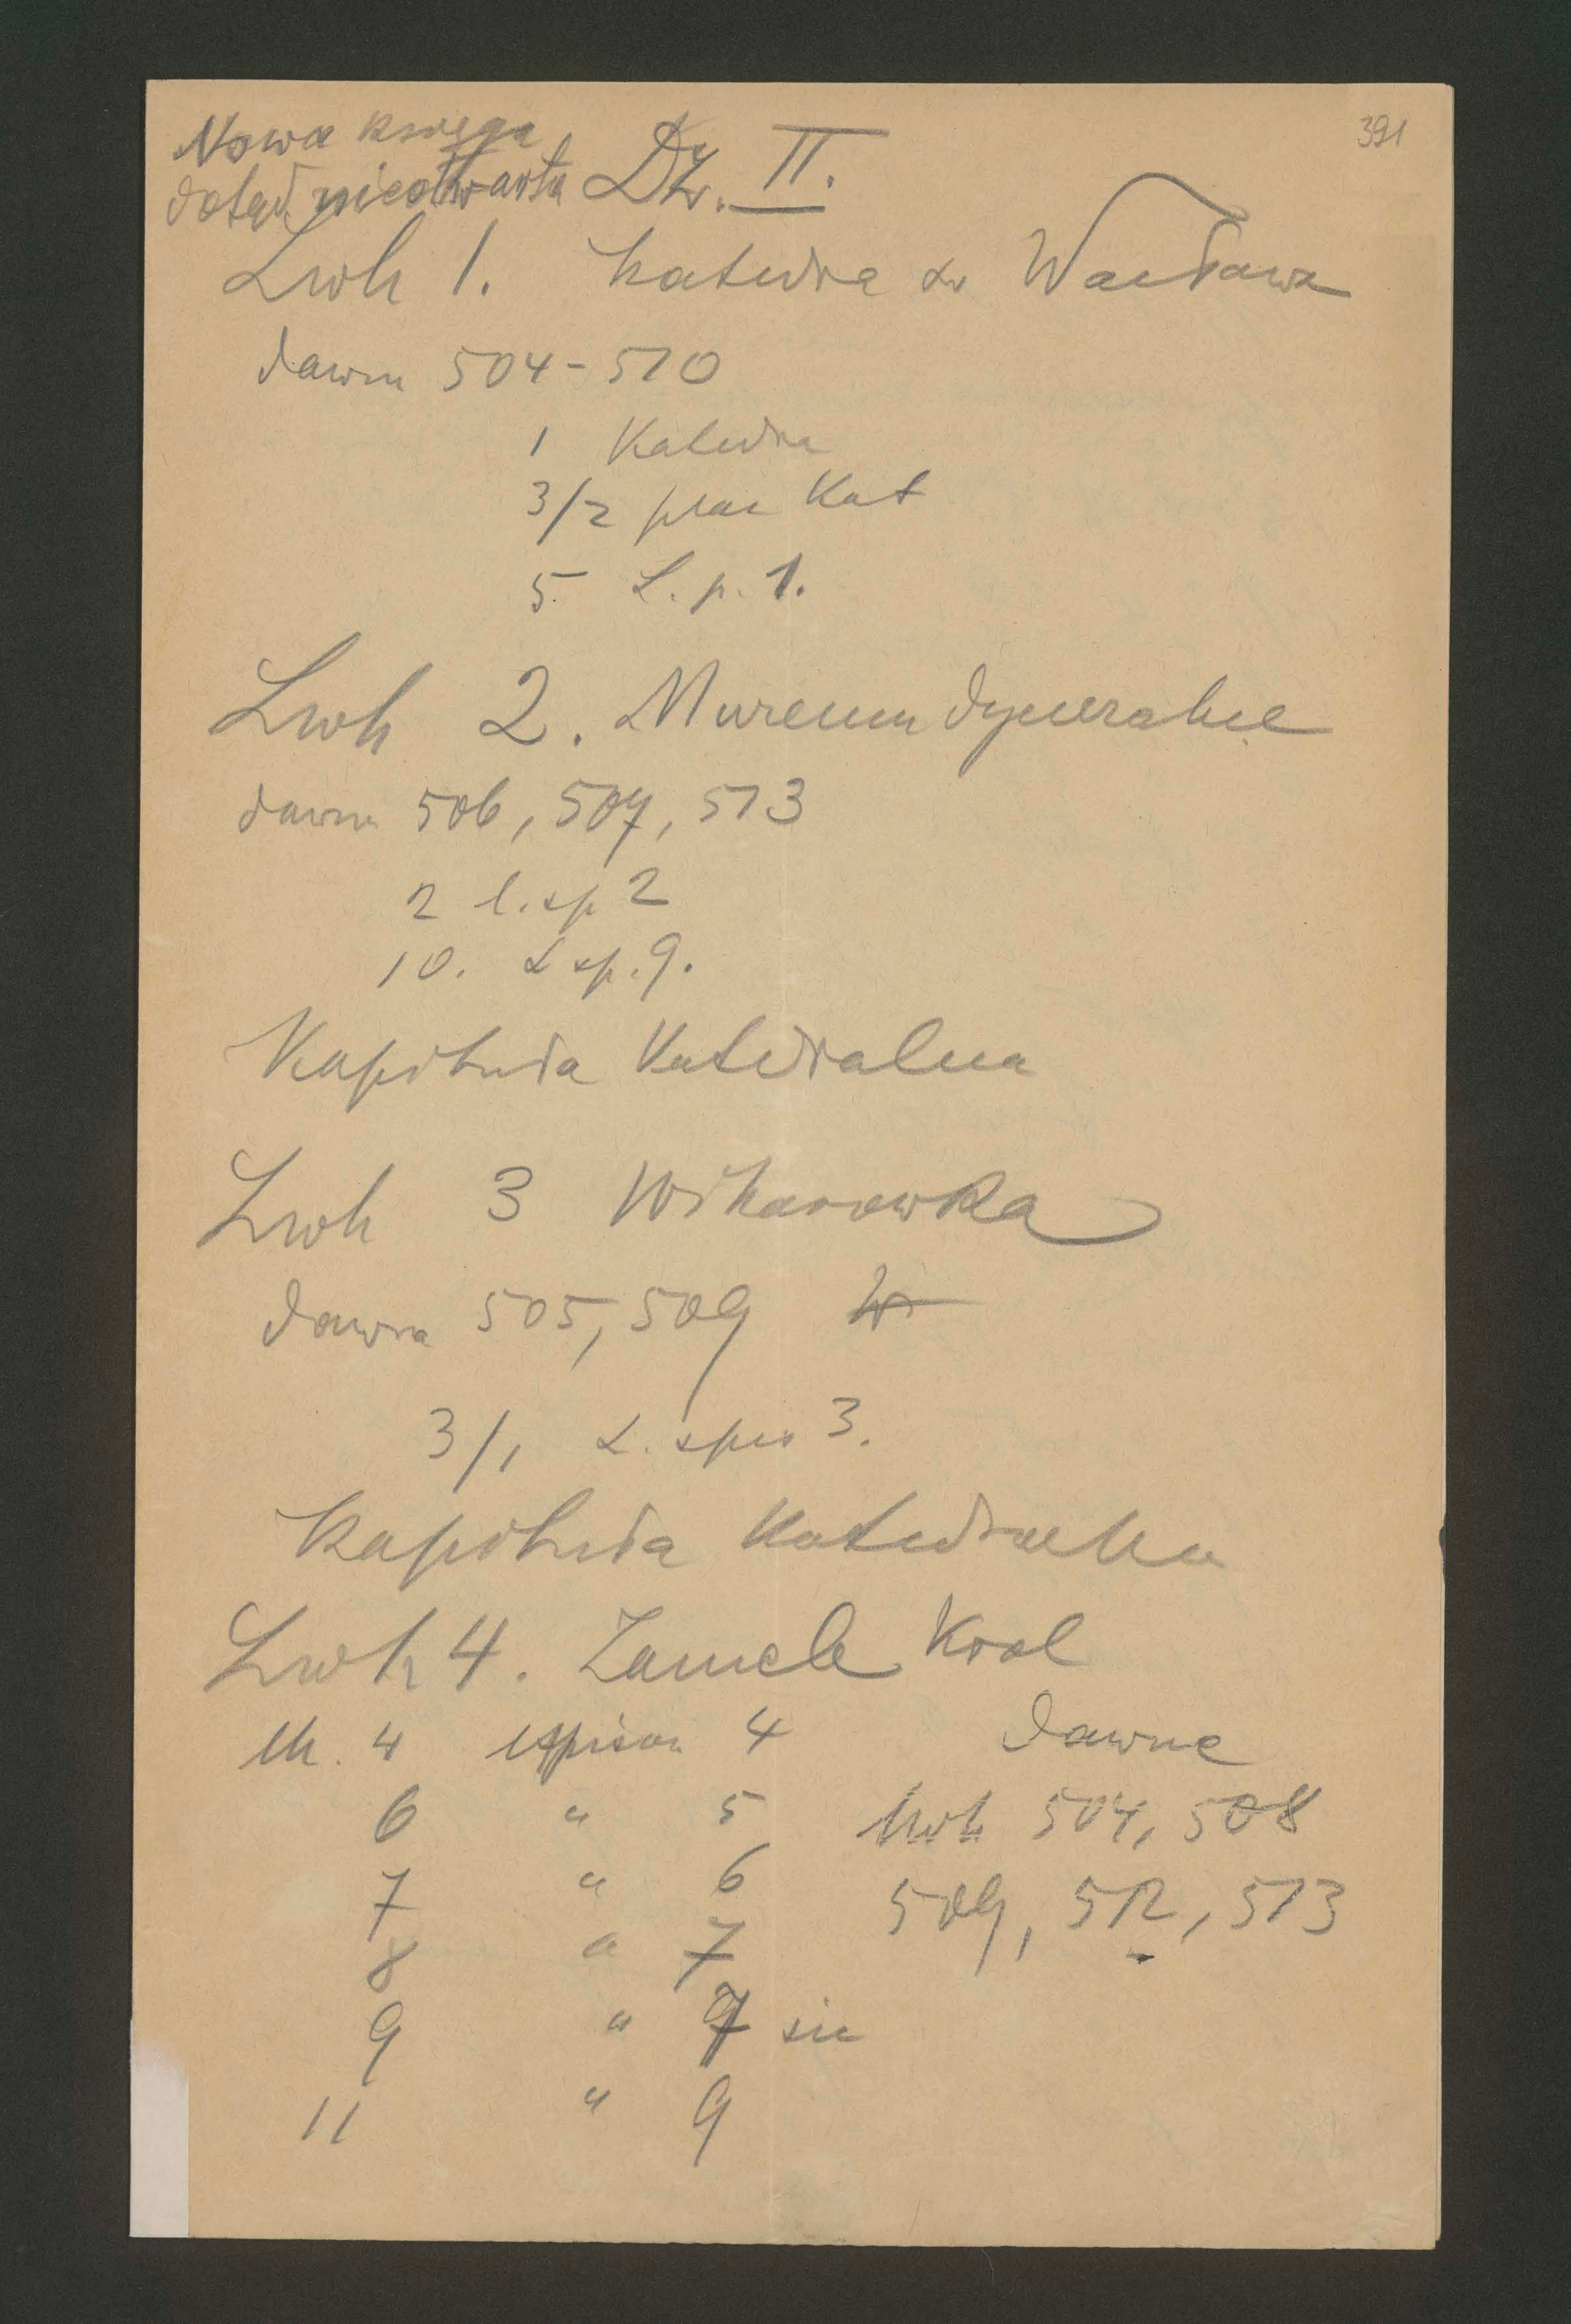 391
Nowa księga
dotąd nieotwarta Dz. II.
Lwh 1. Katedra św Wacława
dawn 504-510
1 Katedra
3/2 plac Kat
5 L. p. 1.
Lwh 2. Muzeum dyecezalne
dawn 506, 507, 513
2 l. sp 2
10. L sp. 9.
Kapituła Katedralna
Lwh 3 Wikarowka
dawna 505, 509
3/1 L. spis 3.
Kapituła Katedralna
Lwh 4. Zamek Krol
lk. 4 4 dawne
6 " 5 lwh 504, 508
7 " 6 509, 512, 513
8 " 7
9 " sic
11 " 9